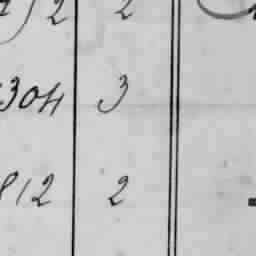 2 2
304 3
812 2